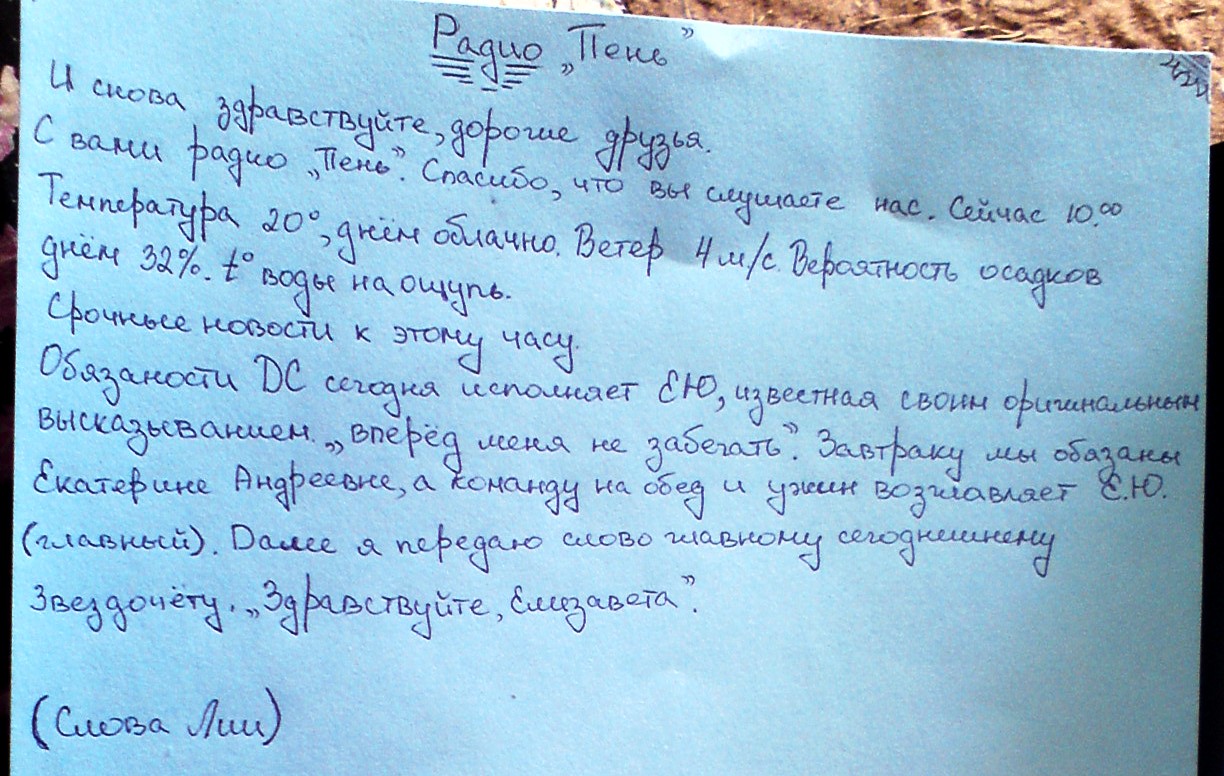 Радио „Пень”
И снова здравствуйте, дорогие друзья.
С вами радио „Пень”. Спасибо, что вы слушаете нас. Сейчас 10.00
Температура 20°, днём облачно. Ветер 4 м/с. Вероятность осадков
днём 32%. t° воды на ощупь.
Срочные новости к этому часу.
Обязаности DC сегодня исполняет ЕЮ, известная своим оригинальным
высказыванием „вперёд меня не забегать”. Завтраку мы обязаны
Екатерине Андреевне, а команду на обед и ужин возглавляет Е.Ю.
(главный). Далее я передаю слово главному сегоднешнему
Звездочёту. „Здравствуйте, Елизавета”.
(Слова Лии)